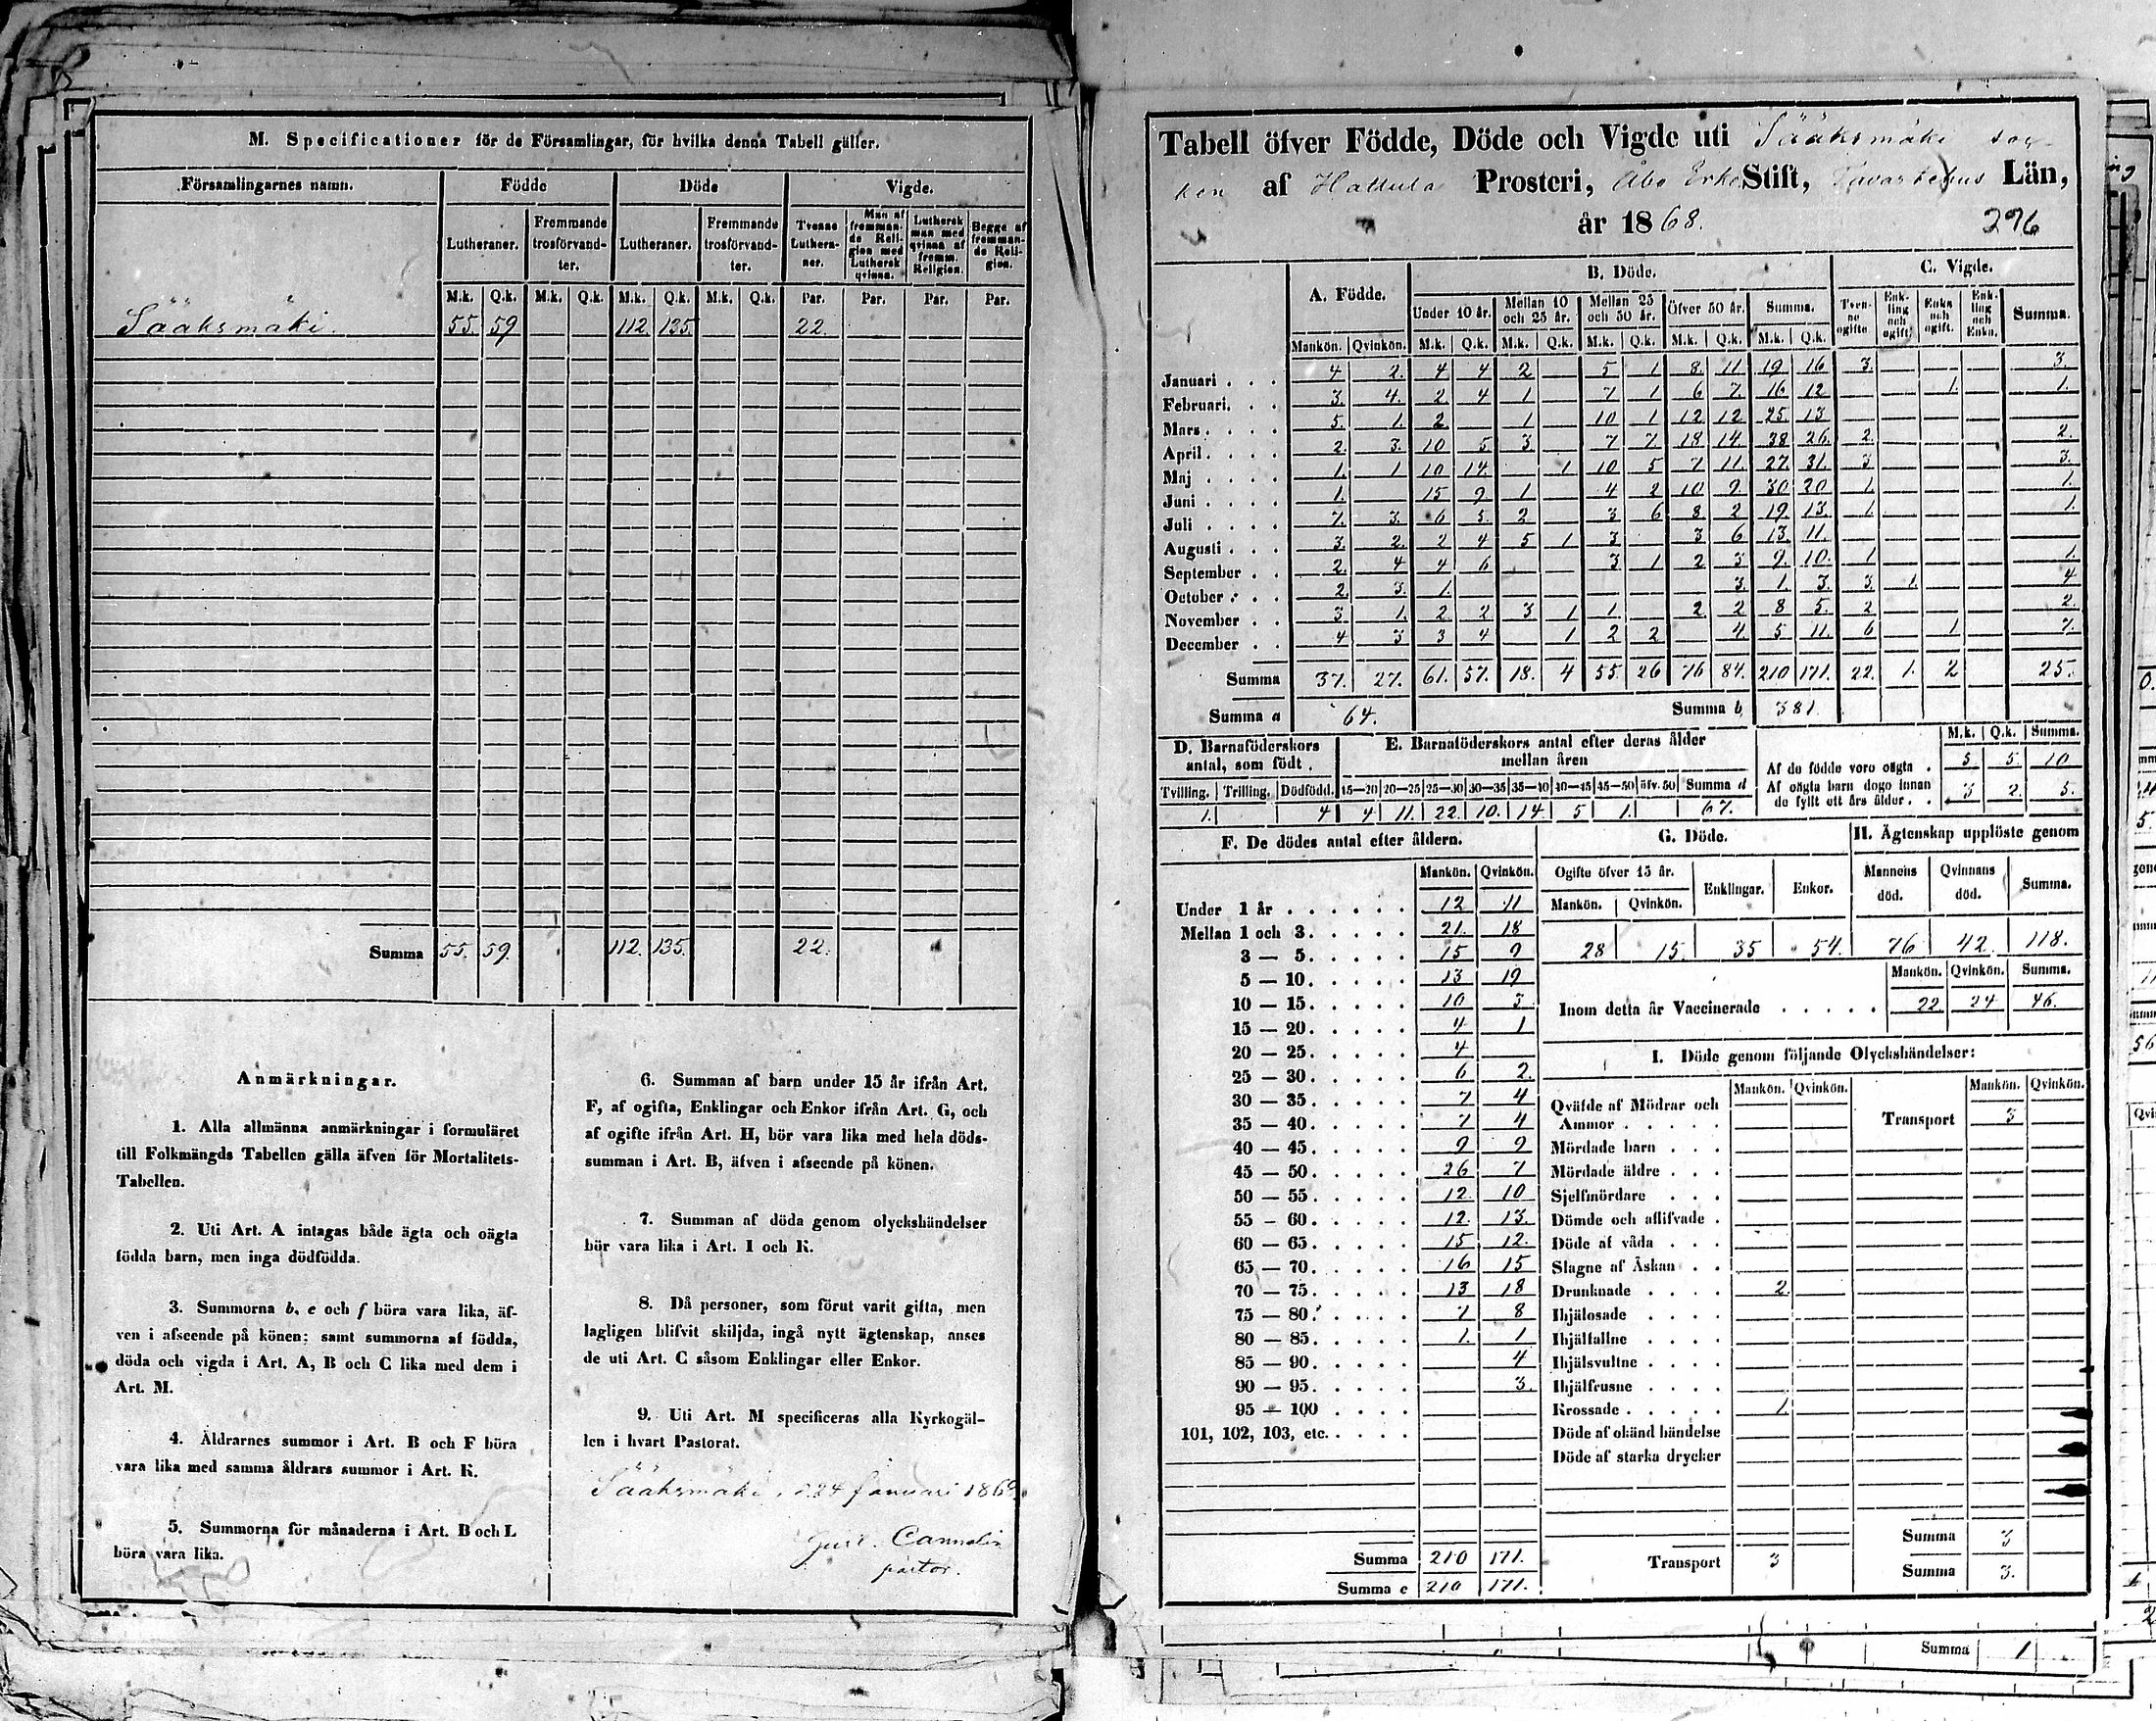 M. Specificationer för de Församlingar, för hvilka denna Tabell gäller.
Församlingarnes namn. Födde Döde Vigde.
Lutheraner. Fremmande trosförvandter. Lutheraner. Fremmande trosförvandter. Tvenne Lutheraner. Man af fremmande Religion med Luthersk qvinna. Luthersk man med qvinna af fremm. Religion. Begge af fremmande Religion.
M.k. Q.k. M.k. Q.k. M.k. Q.k. M.k. Q.k. Par. Par. Par. Par.
Sääksmäki. 55. 59 112. 135. 22.
Summa 55. 59. 112. 135. 22.
Anmärkningar.
1. Alla allmänna anmärkningar i formuläret
till Folkmängds Tabellen gälla äfven för Mortalitets-
Tabellen.
2. Uti Art. A intagas både ägta och oägta
födda barn, men inga dödfödda.
3. Summorna b, e och f böra vara lika, äf-
ven i afseende på könen; samt summorna af födda,
döda och vigda i Art. A, B och C lika med dem i
Art. M.
4. Åldrarnes summor i Art. B och F böra
vara lika med samma åldrars summor i Art. K.
5. Summorna för månaderna i Art. B och L
böra vara lika.
6. Summan af barn under 15 år ifrån Art.
F, af ogifta, Enklingar och Enkor ifrån Art. G, och
af ogifte ifrån Art. H, bör vara lika med hela döds-
summan i Art. B, äfven i afseende på könen.
7. Summan af döda genom olyckshändelser
bör vara lika i Art. I och K.
8. Då personer, som förut varit gifta, men
lagligen blifvit skiljda, ingå nytt ägtenskap, anses
de uti Art. C såsom Enklingar eller Enkor.
9. Uti Art. M specificeras alla Kyrkogäl-
len i hvart Pastorat.
Sääksmäki, d. 24 Januari 1869.
Gust. Cannelin
pastor.
Tabell öfver Födde, Döde och Vigde uti Sääksmäki soc-
ken af Hattula Prosteri, Åbo Erke Stift, Tavastehus Län,
år 1868. 296
A. Födde. B. Döde. C. Vigde.
Under 10 år. Mellan 10 och 25 år. Mellan 25 och 50 år. Öfver 50 år. Summa. Tvenne ogifte Enkling och ogift. Enka och ogift. Enkling och Enka. Summa.
Mankön. Qvinkön. M.k. Q.k. M.k. Q.k. M.k. Q.k. M.k. Q.k. M.k. Q.k.
Januari . . . 4 2. 4 4 2 5 1 8. 11 19 16 3. 3.
Februari. . . 3. 4. 2 4 1 7 1 6 7. 16 12 1. 1.
Mars . . . . 5. 1. 2 1 10 1 12 12 25. 13
April . . . . 2. 3. 10 5. 3. 7 7 18 14 38 26. 2. 2.
Maj . . . . 1. 1 10 14. 1 10 5 7 11. 27. 31. 3 3.
Juni . . . . 1. 15 9 1 4 2 10 9 30 20 1. 1.
Juli . . . . 7. 3. 6 5. 2 3 6 8 2 19. 13. 1. 1.
Augusti . . . 3. 2. 2 4 5 1 3 3 6 13. 11.
September . . 2. 4 4 6 3 1 2 3 9. 10. 1 1.
October . . . 2. 3. 1. 3. 1. 3. 3. 1. 4
November . . 3 1. 2 2 3 1 1. 2 2 8 5. 2 2.
December . . 4 3 3 4 1 2 2 4. 5 11. 6 1 7.
Summa 37. 27. 61. 57. 18. 4 55. 26 76 84. 210 171. 22. 1. 2 25.
Summa a 64. Summa b, 381.
D. Barnaföderskors antal, som födt. E. Barnaföderskors antal efter deras ålder mellan åren M.k. Q.k. Summa.
Tvilling. Trilling. Dödfödd. 15—20 20—25 25—30 30—35 35—40 40—45 45—50 öfv. 50 Summa d
1. 4 4 11. 22. 10. 14. 5 1. 67.
Af de födde voro oägta . 5. 5. 10
Af oägta barn dogo innan de fyllt ett års ålder. . 3 2. 5.
F. De dödes antal efter åldern.
Mankön. Qvinkön.
Under 1 år . . . . . . 12 11
Mellan 1 och 3. . . . . 21. 18
3 — 5. . . . . 15 9
5 — 10. . . . . 13 19
10 — 15. . . . . 10 3
15 — 20. . . . . 4 1
20 — 25. . . . . 4
25 — 30. . . . . 6 2.
30 — 35. . . . . 7 4
35 — 40. . . . . 7 4
40 — 45. . . . . 9 9
45 — 50. . . . . 26 7
50 — 55. . . . . 12. 10
55 – 60. . . . . 12. 13.
60 — 65. . . . . 15 12.
65 — 70. . . . . 16 15
70 — 75. . . . . 13 18
75 — 80. . . . . 7 8
80 — 85. . . . . 1. 1
85 — 90. . . . . 4
90 — 95. . . . . 3.
95 — 100 . . . .
101, 102, 103, etc. . . . .
Summa 210 171.
Summa e 210 171.
G. Döde.
Ogifte öfver 15 år. Enklingar. Enkor.
Mankön. Qvinkön.
28 15. 35 54.
H. Ägtenskap upplöste genom
Mannens död. Qvinnans död. Summa.
76 42. 118.
Mankön. Qvinkön. Summa.
Inom detta år Vaccinerade . . . . . 22. 24 46.
I. Döde genom följande Olyckshändelser:
Mankön. Qvinkön. Mankön. Qvinkön.
Qväfde af Mödrar och
Ammor . . . . . Transport 3
Mördade barn . . .
Mördade äldre . . .
Sjelfmördare . . .
Dömde och aflifvade .
Döde af våda . . .
Slagne af Åskan . .
Drunknade . . . . 2.
Ihjälosade . . . .
Ihjälfallne . . . .
Ihjälsvultne . . . .
Ihjälfrusne . . . .
Krossade . . . . . 1.
Döde af okänd händelse
Döde af starka drycker
Summa 3
Transport 3 Summa 3.
Summa 1